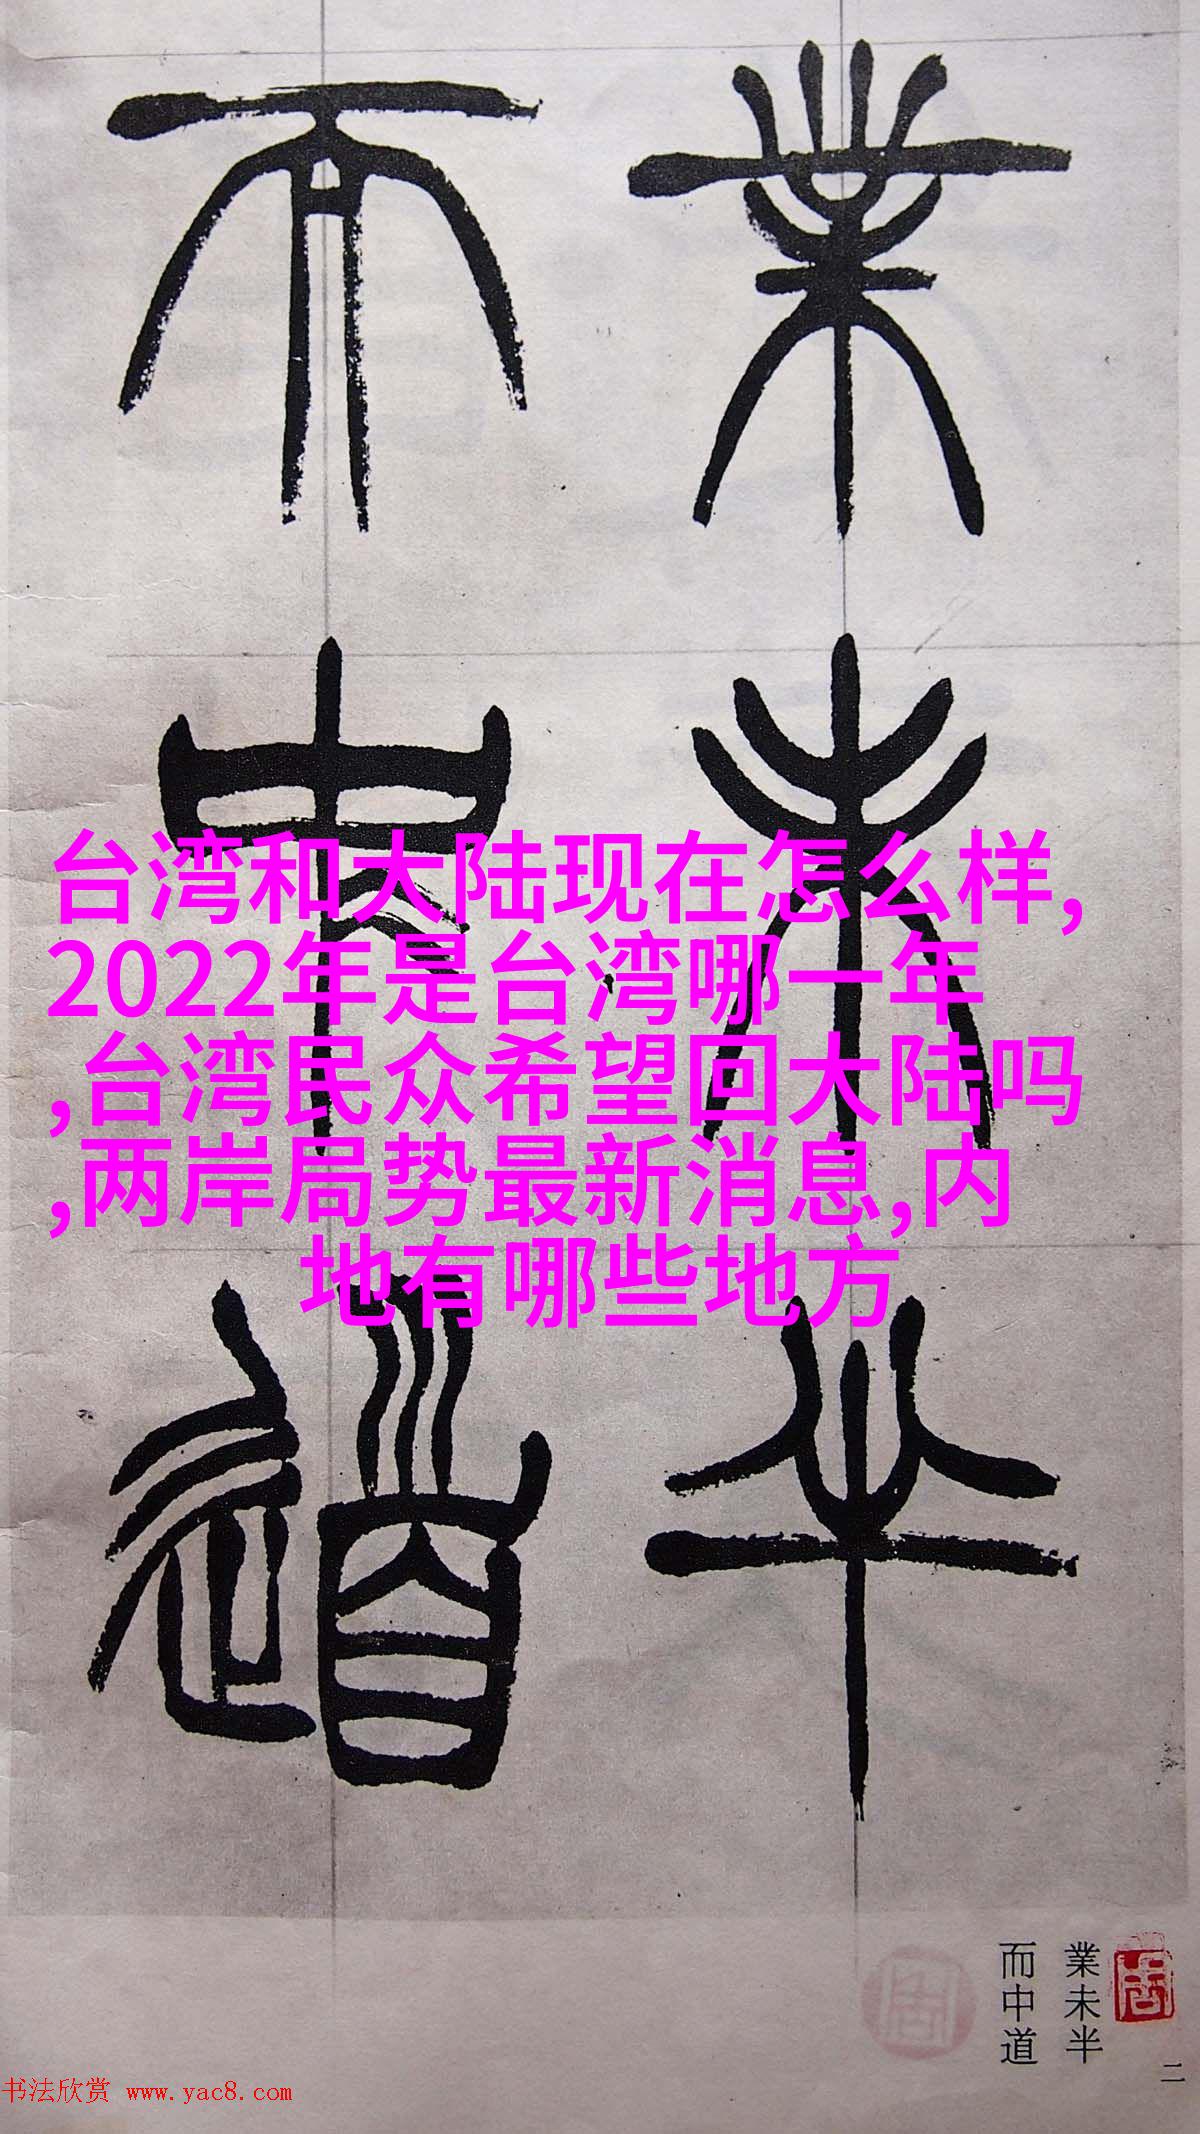 業未半
而中道
台湾和大陆现在怎么样,
2022年是台湾哪一年
,台湾民众希望回大陆吗
,两岸局势最新消息,内
地有哪些地方
業未半
而中道
二
书法欣赏 www.yac8.com